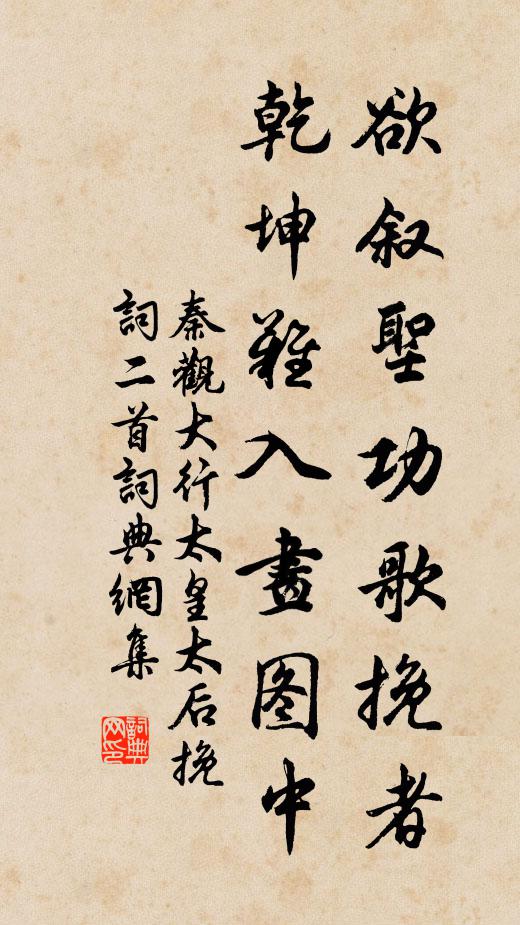 欲叙聖功歌挽者
乾坤難入畫图中
秦觀大行太皇太后挽
詞二首詞典網集
詞典網印